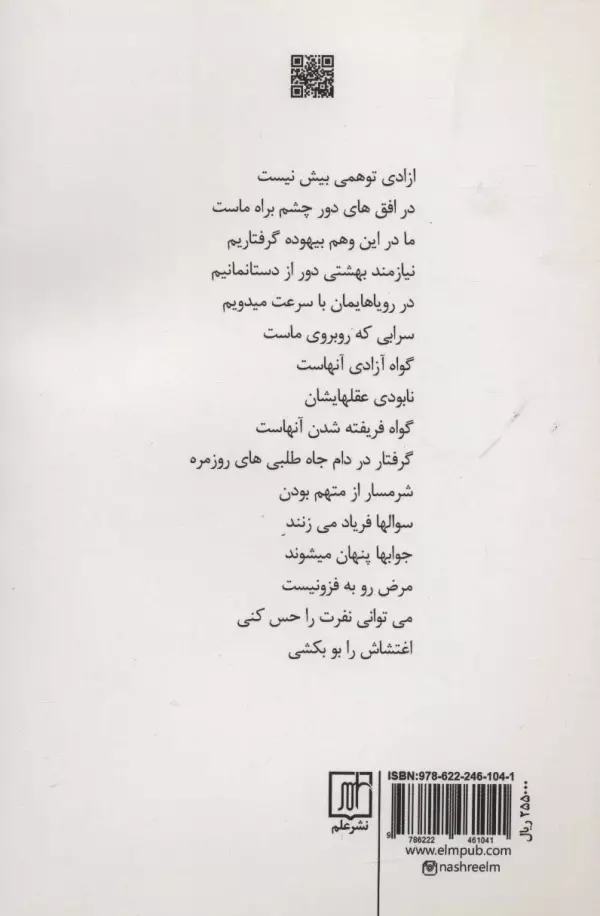 ازادی توهمی بیش نیست
در افق های دور چشم براه ماست
ما در این وهم بیهوده گرفتاریم
نیازمند بهشتی دور از دستانمانیم
در رویاهایمان با سرعت میدویم
سرابی که روبروی ماست
گواه آزادی آنهاست
نابودی عقلهایشان
گواه فریفته شدن آنهاست
گرفتار در دام جاه طلبی های روزمره
شرمسار از متهم بودن
سوالها فریاد می زنند
جوابها پنهان میشوند
مرض رو به فزونیست
می توانی نفرت را حس کنی
اغتشاش را بو بکشی
نشر علم
ISBN:978-622-246-104-1
9 786222 461041
www.elmpub.com
nashreelm
۲۵۵۰۰۰ ریال